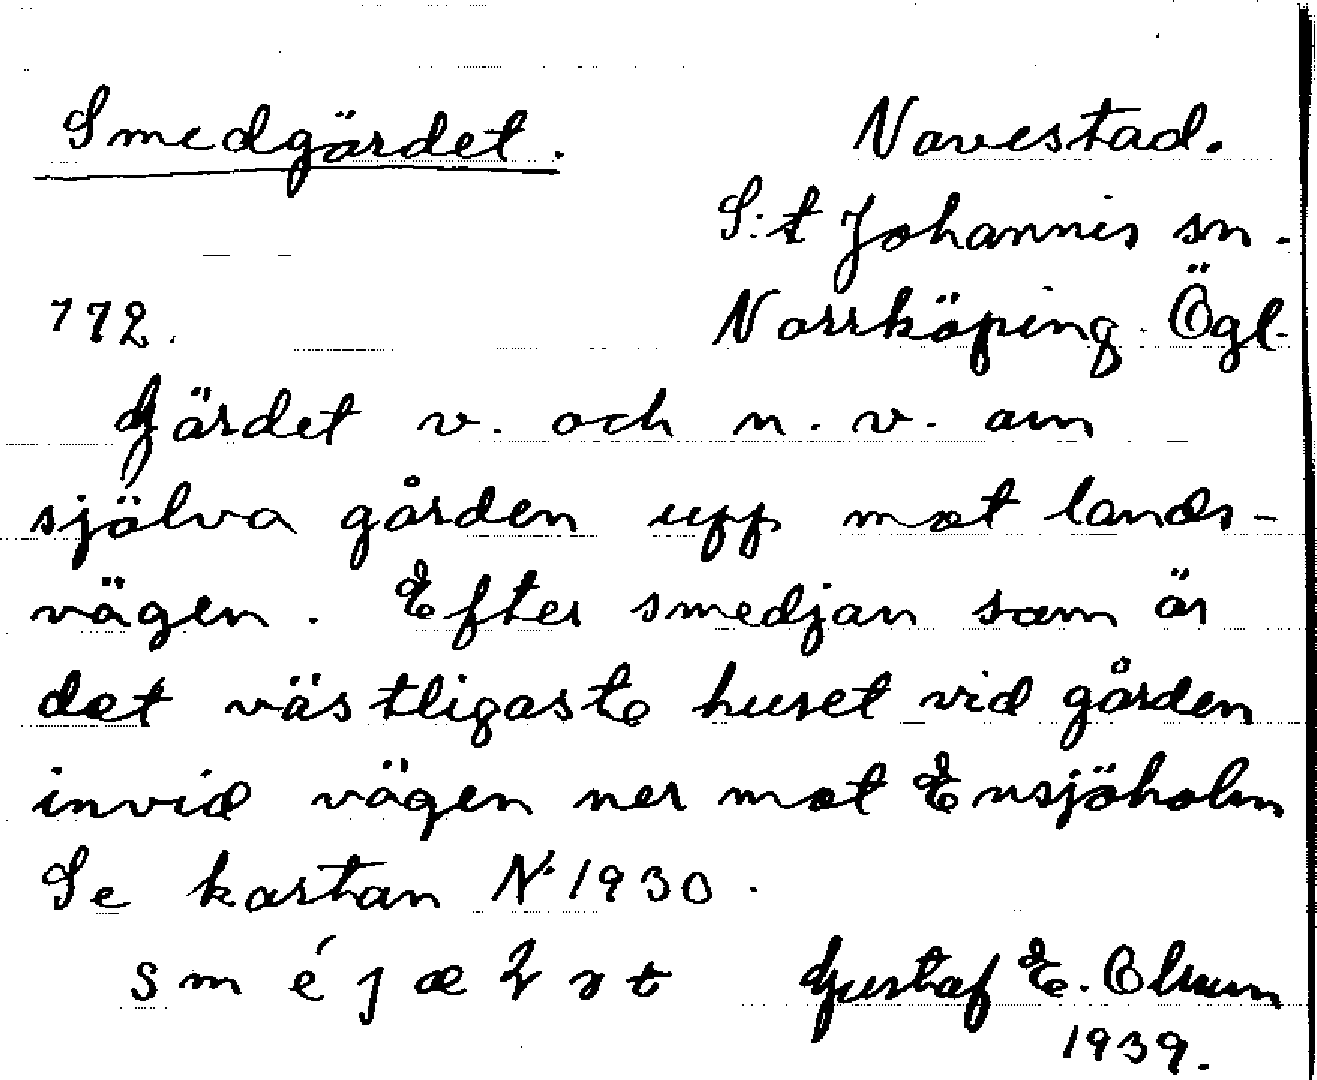 Smedgärdet. Navestad.
S:t Johannis sn.
772. Norrköping Ögl.
Gärdet v. och n.v. om
själva gården upp mot lands-
vägen. Efter smedjan som är
det västligaste huset vid gården
invid vägen ner mot Ensjöholm
Se kartan N:1930.
Gustaf E. Olsson
1939.